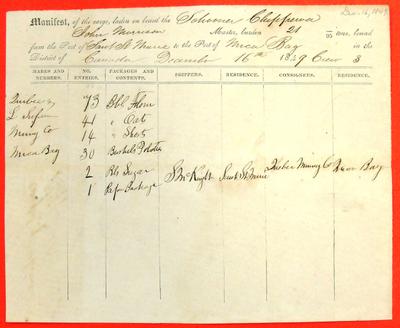 Dec. 16, 1849
Manifest, of the cargo, laden on board the Schooner Chippewa
John Morrison Master, burden 21 95 tons, bound
from the Port of Saut St Marie to the Port of Mica Bay in the
District of Canada December 16th 1849 Crew 3
MARKS AND NUMBERS. NO. ENTRIES. PACKAGES AND CONTENTS. SHIPPERS. RESIDENCE. CONSIGNEES. RESIDENCE.
Quebec & 73 Bbl Flour
L Superior 41 " Oats
Mining Co 14 " Shots
Mica Bay 30 Bushels Potatoes
2 Bls Sugar S McKnight Saut St Marie Quebec Mining Co Mica Bay
1 Package